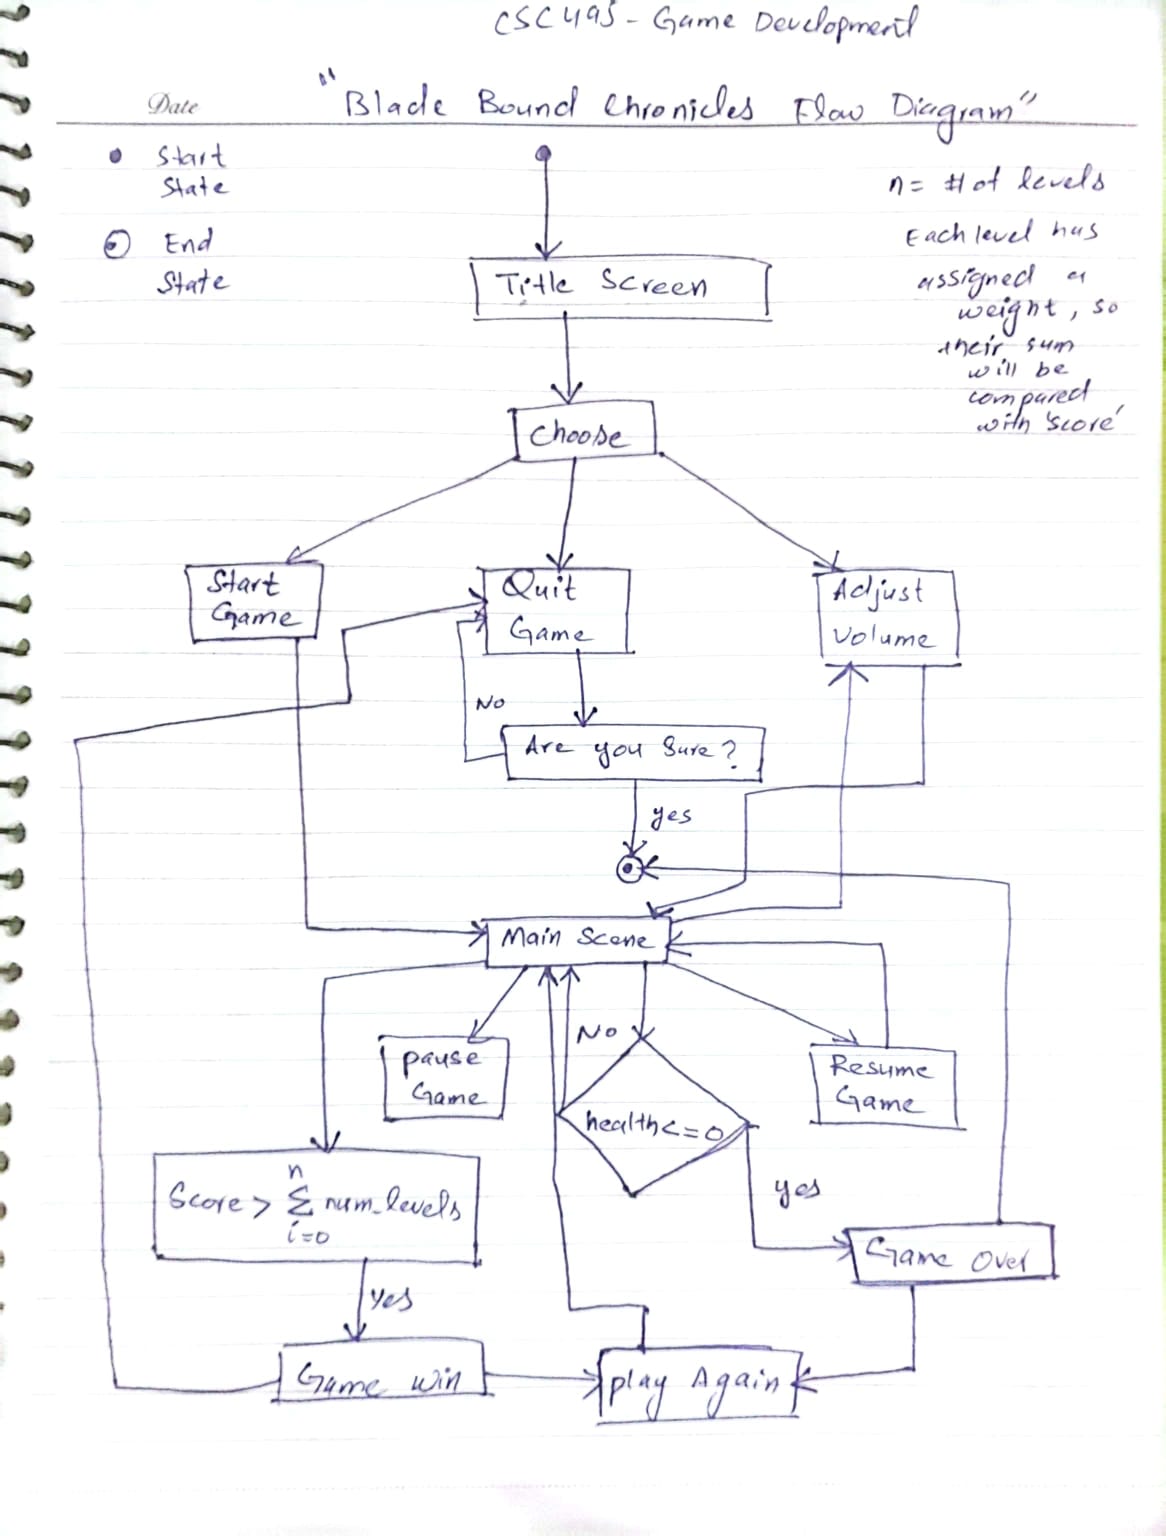 CSC495 - Game Development
Date
"Blade Bound Chronicles Flow Diagram"
Start
State
End
State
n = # of levels
Each level has
assigned a
weight, so
their sum
will be
compared
with 'score'
Title Screen
Choose
Start
Game
Quit
Game
Adjust
Volume
No
Are you Sure?
yes
Main Scene
No
pause
Game
health<=0
Resume
Game
yes
n
Score > Σ num_levels
i=0
Game Over
yes
Game win
play Again